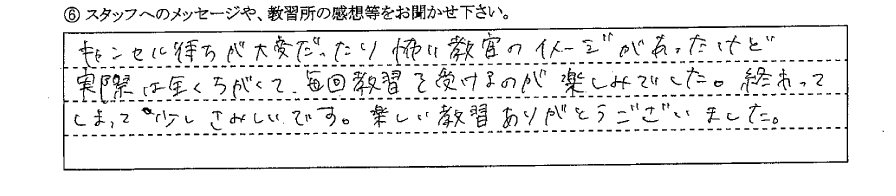 ⑥ スタッフへのメッセージや、教習所の感想等をお聞かせ下さい。
キャンセル待ちが大変だったり怖い教官のイメージがあったけど
実際は全くちがくて、毎回教習を受けるのが楽しみでした。終わって
しまって少しさみしいです。楽しい教習ありがとうございました。